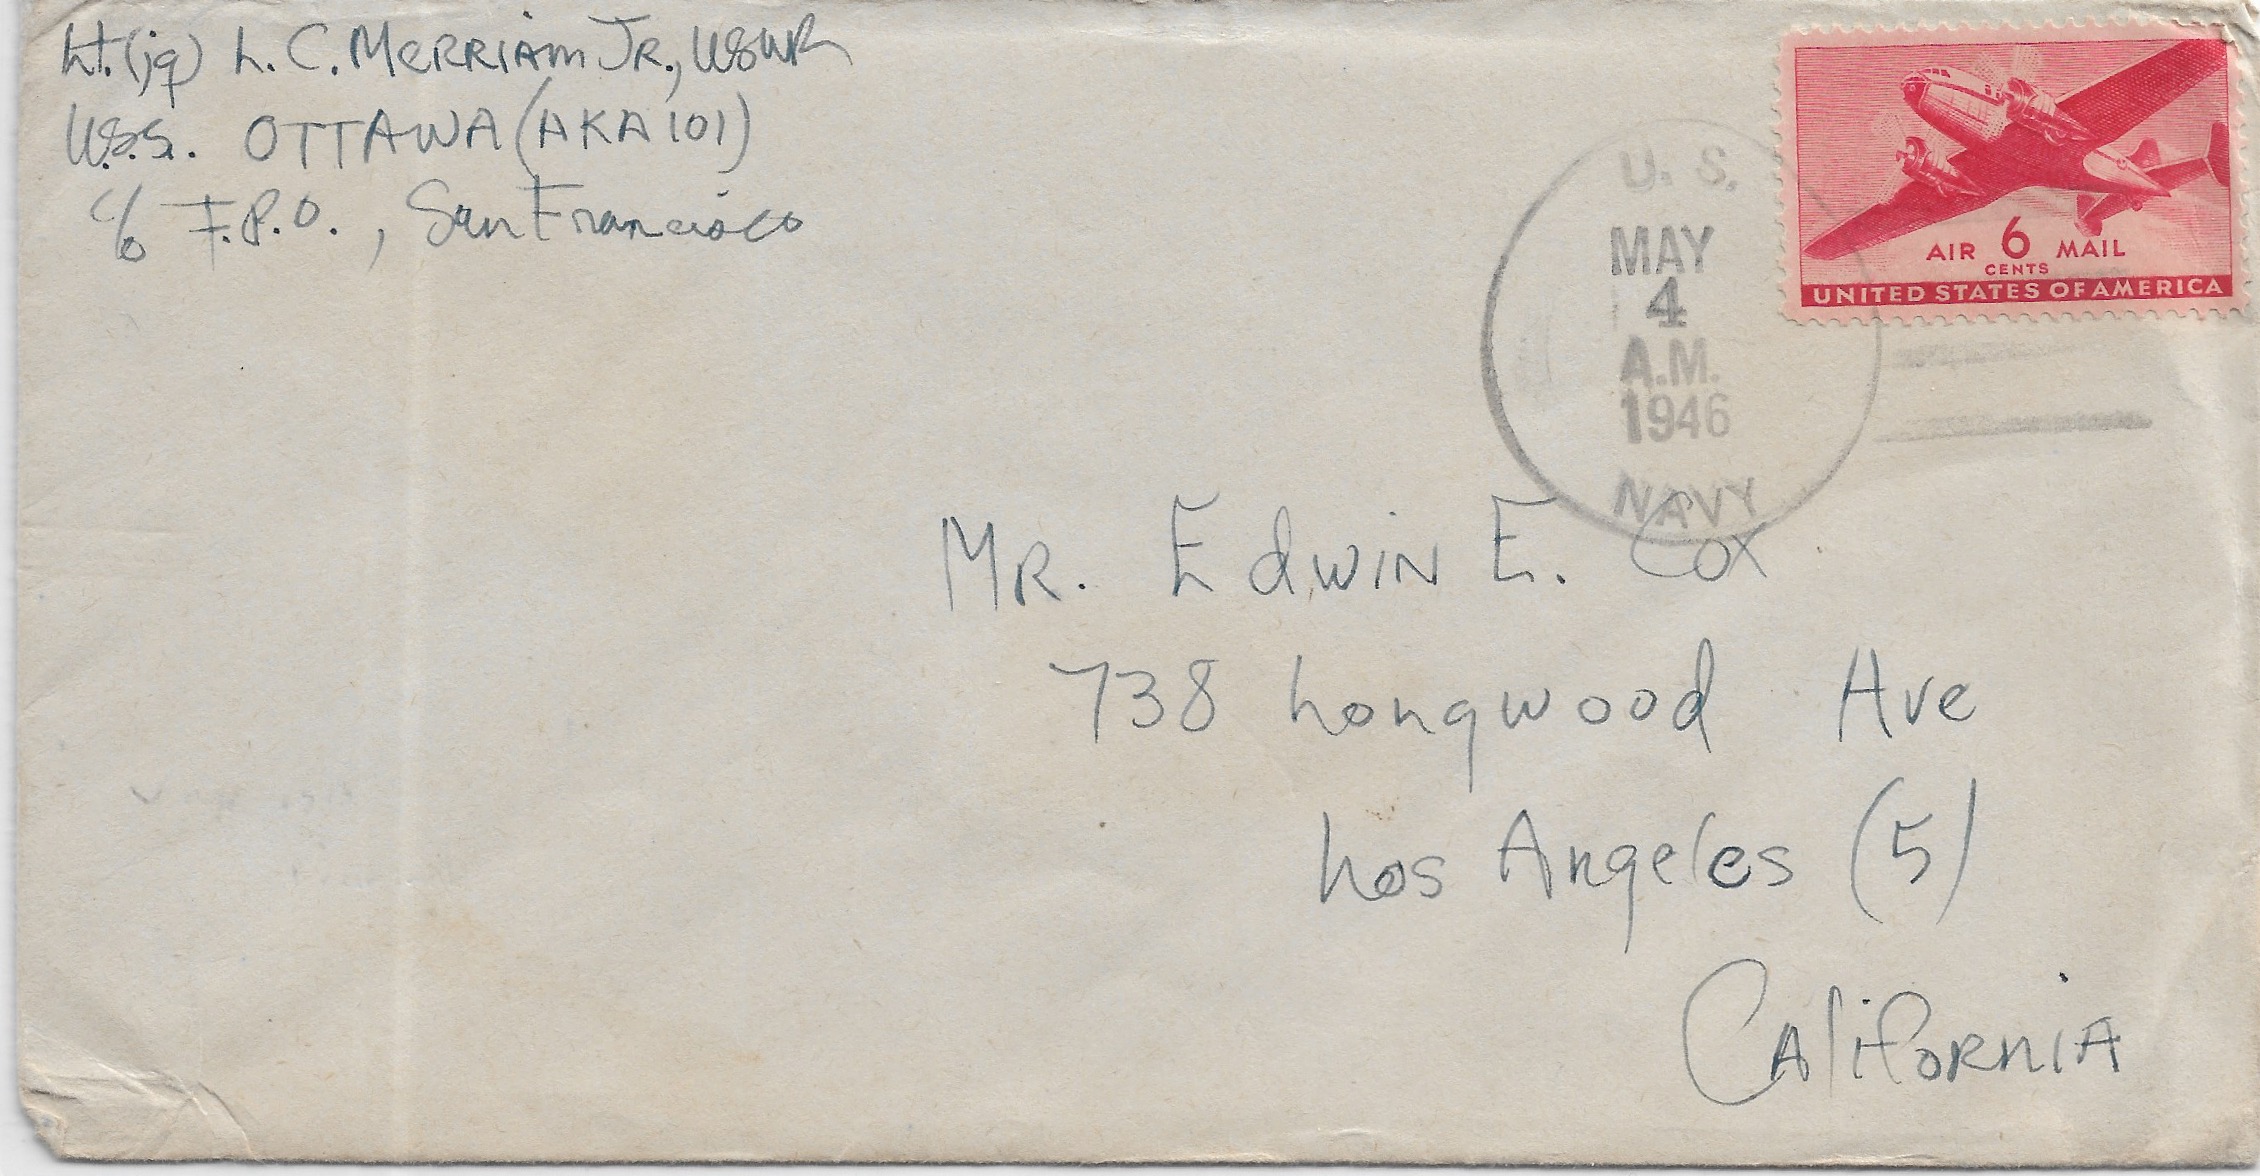 Lt.(jg) L. C. MERRIAM JR., USNR
U.S.S. OTTAWA (AKA 101)
c/o F.P.O., San Francisco
AIR 6 MAIL
CENTS
UNITED STATES OF AMERICA
U. S.
MAY
4
A.M.
1946
NAVY
MR. EdwIN E. Cox
738 Longwood Ave
Los Angeles (5)
CALiFORNIA